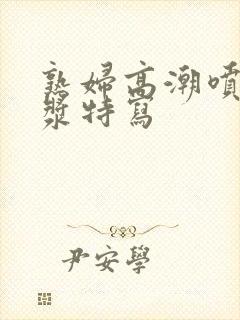 熟婦高潮噴
漿特寫
尹安學